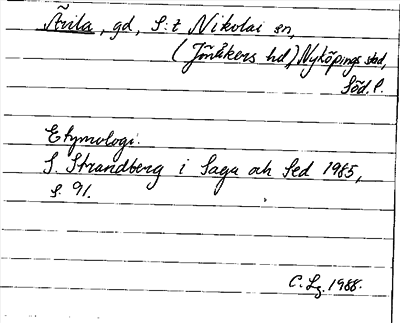 Ärila, gd, S:t Nikolai sn,
(Jönåkers hd) Nyköpings stad,
Söd. l.
Etymologi:
S. Strandberg i Saga och Sed 1985,
s. 91.
C. Lg. 1988.